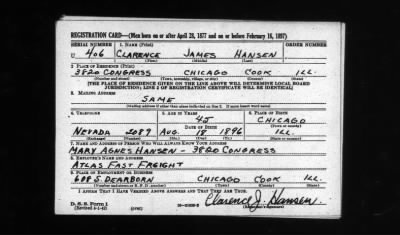 REGISTRATION CARD—(Men born on or after April 28, 1877 and on or before February 16, 1897)
SERIAL NUMBER 1. NAME (Print) ORDER NUMBER
U 406 CLARENCE JAMES HANSEN
(First) (Middle) (Last)
2. PLACE OF RESIDENCE (Print)
3820 CONGRESS CHICAGO COOK ILL.
(Number and street) (Town, township, village, or city) (County) (State)
[THE PLACE OF RESIDENCE GIVEN ON THE LINE ABOVE WILL DETERMINE LOCAL BOARD
JURISDICTION; LINE 2 OF REGISTRATION CERTIFICATE WILL BE IDENTICAL]
3. MAILING ADDRESS
SAME
[Mailing address if other than place indicated on line 2. If same insert word same]
4. TELEPHONE 5. AGE IN YEARS 6. PLACE OF BIRTH
45 CHICAGO
DATE OF BIRTH
NEVADA 2089 AUG. 18 1896 ILL.
(Exchange) (Number) (Mo.) (Day) (Yr.) (State or country)
7. NAME AND ADDRESS OF PERSON WHO WILL ALWAYS KNOW YOUR ADDRESS
MARY AGNES HANSEN - 3820 CONGRESS
8. EMPLOYER'S NAME AND ADDRESS
ATLAS FAST FREIGHT
9. PLACE OF EMPLOYMENT OR BUSINESS
608 S. DEARBORN CHICAGO COOK ILL.
(Number and street or R. F. D. number) (Town) (County) (State)
I AFFIRM THAT I HAVE VERIFIED ABOVE ANSWERS AND THAT THEY ARE TRUE.
D. S. S. Form 1
(Revised 4-1-42) (over) Clarence J. Hansen
(Registrant's signature)